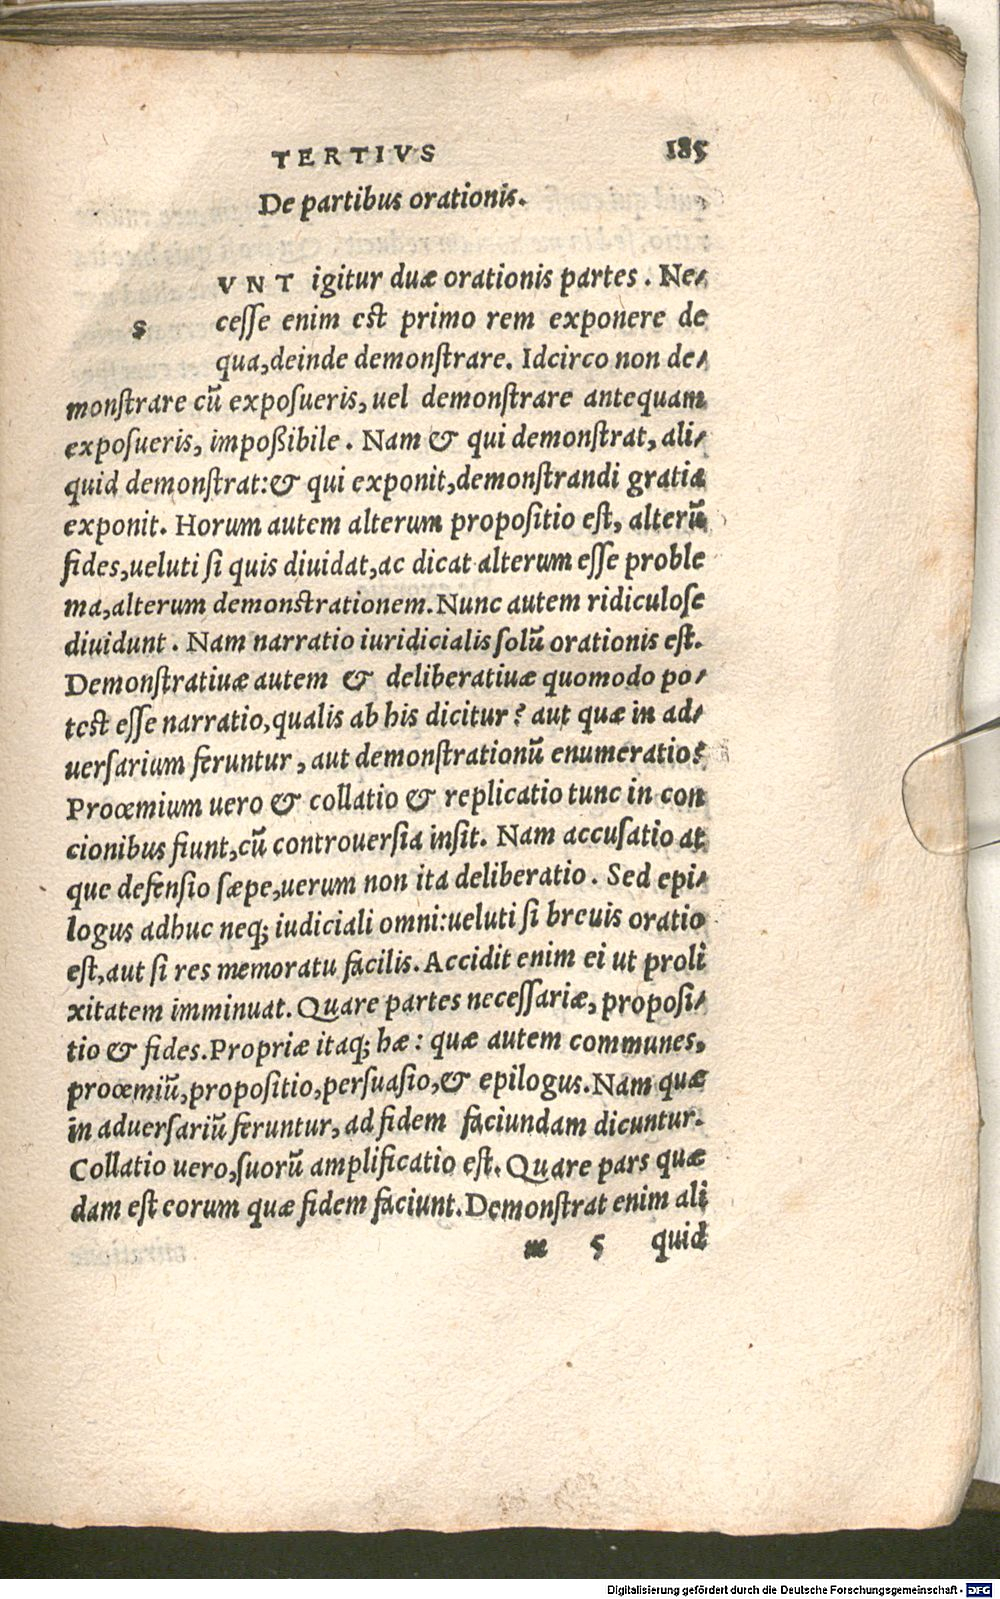 TERTIVS 185
De partibus orationis.
S VNT igitur duæ orationis partes. Ne-
cesse enim est primo rem exponere de
qua, deinde demonstrare. Idcirco non de-
monstrare cū exposueris, uel demonstrare antequam
exposueris, impoßibile. Nam & qui demonstrat, ali-
quid demonstrat: & qui exponit, demonstrandi gratia
exponit. Horum autem alterum propositio est, alterū
fides, ueluti si quis diuidat, ac dicat alterum esse proble
ma, alterum demonstrationem. Nunc autem ridiculose
diuidunt. Nam narratio iuridicialis solū orationis est.
Demonstratiuæ autem & deliberatiuæ quomodo po-
test esse narratio, qualis ab his dicitur? aut quæ in ad-
uersarium feruntur, aut demonstrationū enumeratio?
Proœmium uero & collatio & replicatio tunc in con
cionibus fiunt, cū controuersia insit. Nam accusatio at
que defensio sæpe, uerum non ita deliberatio. Sed epi-
logus adhuc neq; iudiciali omni: ueluti si breuis oratio
est, aut si res memoratu facilis. Accidit enim ei ut proli
xitatem imminuat. Quare partes necessariæ, proposi-
tio & fides. Propriæ itaq; hæ: quæ autem communes,
proœmiū, propositio, persuasio, & epilogus. Nam quæ
in aduersariū feruntur, ad fidem faciundam dicuntur.
Collatio uero, suorū amplificatio est. Quare pars quæ
dam est eorum quæ fidem faciunt. Demonstrat enim ali
m 5 quid
Digitalisierung gefördert durch die Deutsche Forschungsgemeinschaft - DFG